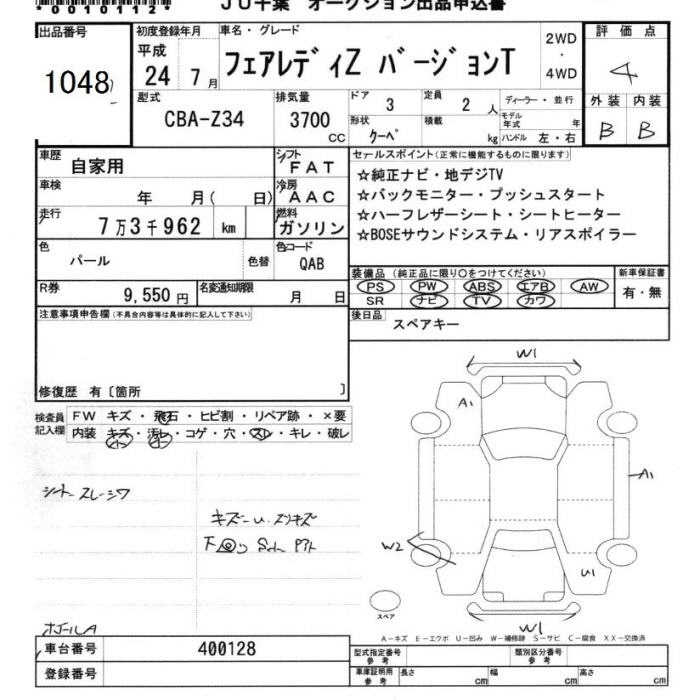 *0010112*
JU千葉 オークション出品申込書
出品番号 初度登録年月 車名・グレード 2WD・4WD 評価点
1048 平成 24 7月 フェアレディZ バージョンT 4
型式 排気量 ドア 3 定員 2人 ディーラー・並行 外装 内装
CBA-Z34 3700CC 形状 クーペ 積載 kg モデル年式 年 ハンドル 左・右 B B
車歴 自家用 シフト FAT
車検 年 月( 日) 冷房 AAC
走行 7万3千962 km 燃料 ガソリン
色 パール 色替 色コード QAB
R券 9,550円 名変通知期限 月 日
セールスポイント(正常に機能するものに限ります)
☆純正ナビ・地デジTV
☆バックモニター・プッシュスタート
☆ハーフレザーシート・シートヒーター
☆BOSEサウンドシステム・リアスポイラー
装備品 (純正品に限り○をつけてください) 新車保証書
PS PW ABS エアB AW 有・無
SR ナビ TV カワ
後日品 スペアキー
注意事項申告欄(不具合内容等は具体的に記入して下さい)
修復歴 有〔箇所 〕
検査員記入欄 FW キズ・飛石・ヒビ割・リペア跡・×要
内装 キズ・汚レ・コゲ・穴・スレ・キレ・破レ
シート スレ シワ
W1
A1
A1
W2
U1
W1
スペア
A-キズ E-エクボ U-凹み W-補修跡 S-サビ C-腐食 XX-交換済
車台番号 400128
登録番号
型式指定番号 参考 類別区分番号 参考
車庫証明用 参考 長さ cm 幅 cm 高さ cm